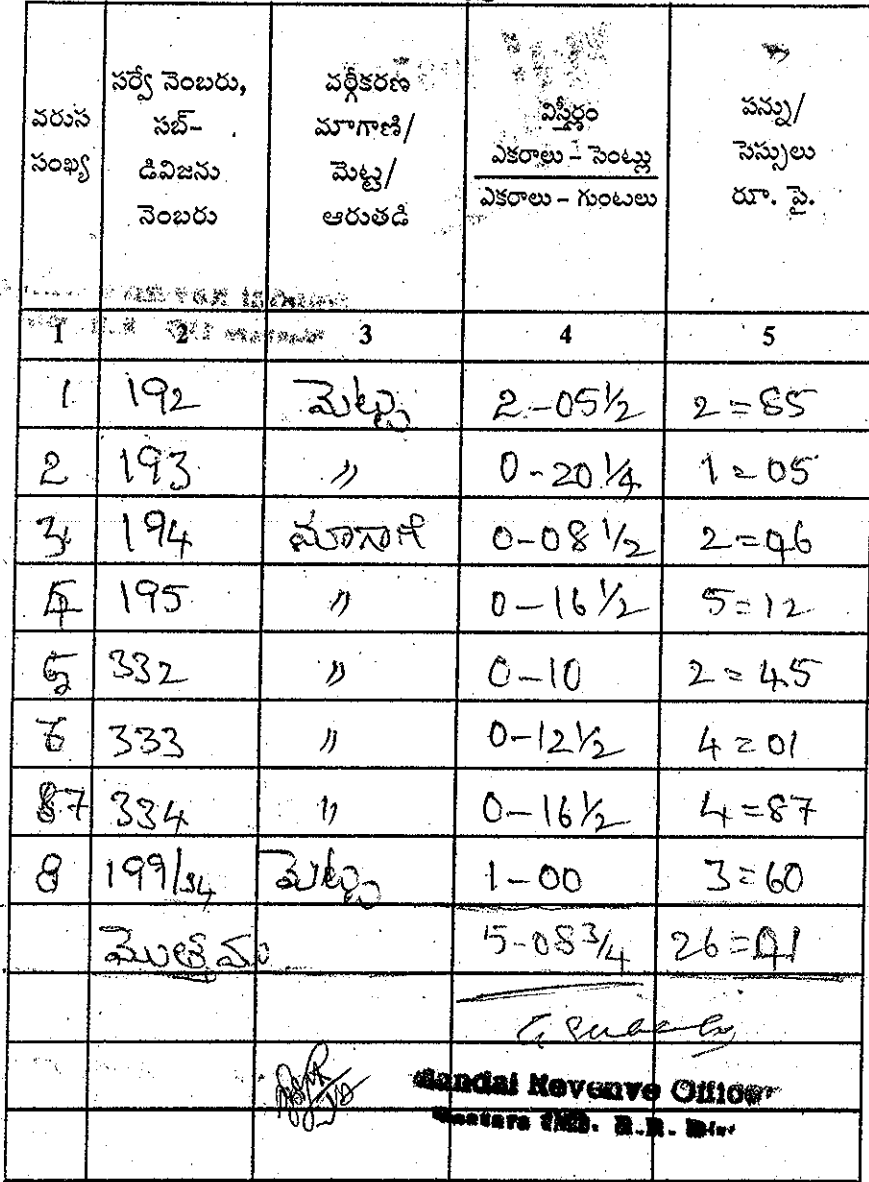 వరుస సంఖ్య | సర్వే నెంబరు, సబ్- డివిజను నెంబరు | వర్గీకరణ మాగాణి/ మెట్ట/ ఆరుతడి | విస్తీర్ణం ఎకరాలు - సెంట్లు ఎకరాలు - గుంటలు | పన్ను/ సెస్సులు రూ. పై.
1 | 2 | 3 | 4 | 5
1 | 192 | మెట్ట | 2-05½ | 2=85
2 | 193 | " | 0-20¼ | 1=05
3 | 194 | మాగాణి | 0-08½ | 2=46
4 | 195 | " | 0-16½ | 5=12
5 | 332 | " | 0-10 | 2=45
6 | 333 | " | 0-12½ | 4=01
7 | 334 | " | 0-16½ | 4=87
8 | 199/34 | మెట్ట | 1-00 | 3=60
మొత్తము | 5-08¾ | 26=41
Mandal Revenue Officer
R.R. Dist